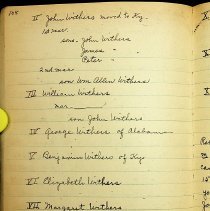 105
II John Withers moved to Ky.
1st mar.
sons. John Withers
James "
Peter "
2nd mar
son Wm Allen Withers
III William Withers
mar.
son John Withers
IV George Withers of Alabama
V Benjamin Withers of Ky
VI Elizabeth Withers
VII Margaret Withers